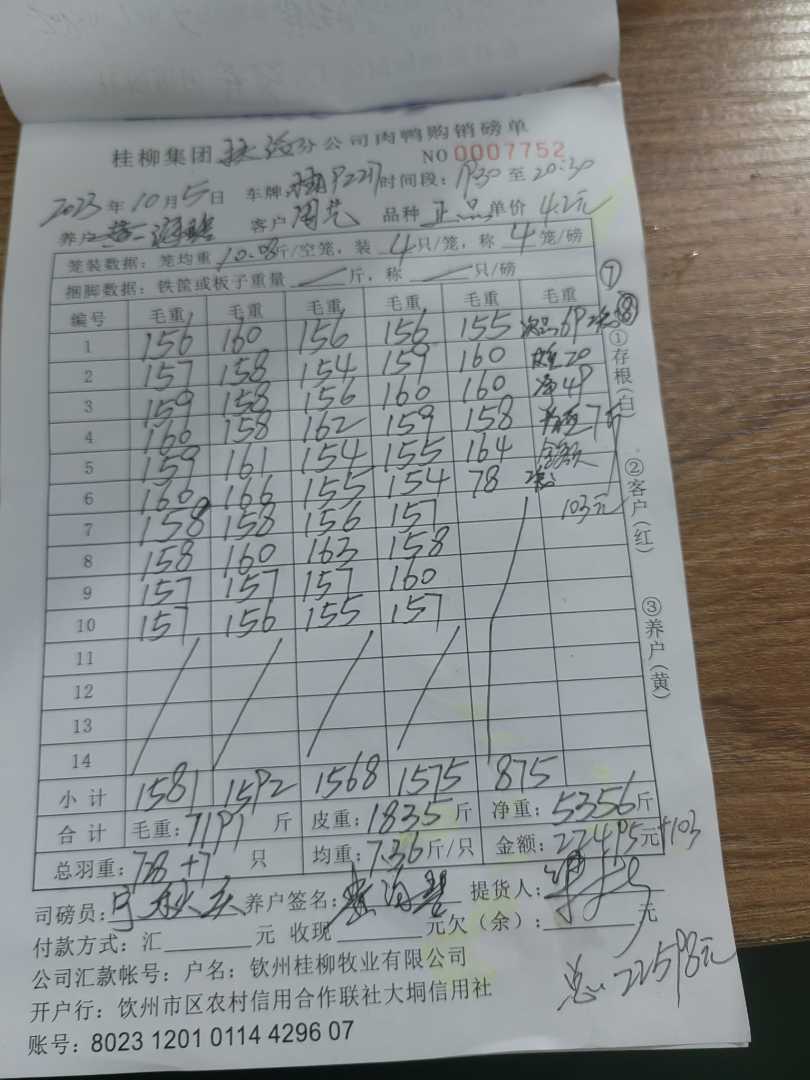 桂柳集团 分公司肉鸭购销磅单
NO 0007752
2023年10月5日 车牌 时间段: 1930 至 20:30
养户 客户 周艺 品种 正品 单价 4.2元
笼装数据: 笼均重 10.08斤/空笼, 装 4 只/笼, 称 4 笼/磅
捆脚数据: 铁筐或板子重量 斤, 称 只/磅
⑦
⑧
编号 毛重 毛重 毛重 毛重 毛重 毛重
1 156 160 156 156 155 次品 6P
2 157 158 154 159 160 20
3 159 158 156 160 160 净 48
4 160 158 162 159 158 7元
5 159 161 154 155 164 金额
6 160 166 155 154 78
7 158 158 156 157 103元
8 158 160 163 158
9 157 157 157 160
10 157 156 155 157
11
12
13
14
小计 1581 1592 1568 1575 875
合计 毛重: 7191 斤 皮重: 1835 斤 净重: 5356 斤
总羽重: 728+7 只 均重: 7.36 斤/只 金额: 22495元+103
司磅员: 养户签名: 提货人:
付款方式: 汇 元 收现 元欠(余): 元
公司汇款帐号: 户名: 钦州桂柳牧业有限公司
总: 22598元
开户行: 饮州市区农村信用合作联社大垌信用社
账号: 8023 1201 0114 4296 07
①存根(白)
②客户(红)
③养户(黄)